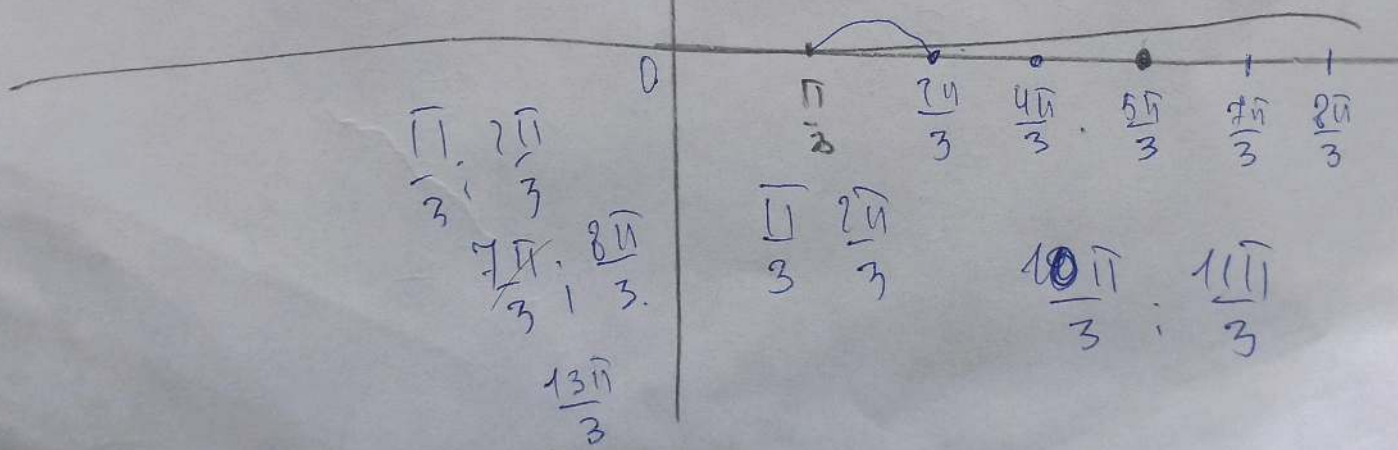 0 π/3 2π/3 4π/3 . 5π/3 7π/3 8π/3
π/3 ; 2π/3
7π/3 ; 8π/3.
13π/3
π/3 2π/3
10π/3 ; 11π/3